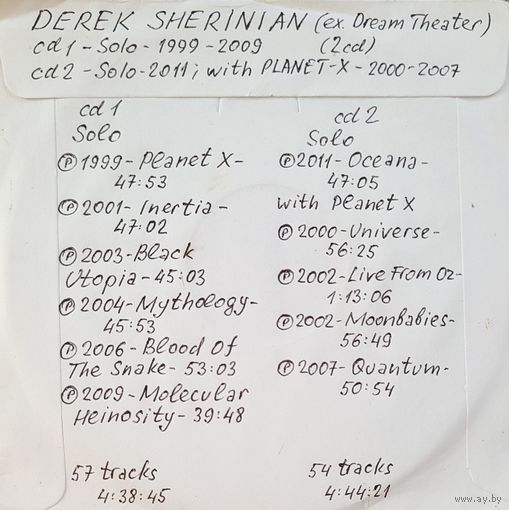 DEREK SHERINIAN (ex. Dream Theater)
cd1 - Solo - 1999 - 2009 (2cd)
cd2 - Solo - 2011; with PLANET-X - 2000-2007
cd1
Solo
Ⓟ1999 - Planet X -
47:53
Ⓟ2001 - Inertia -
47:02
Ⓟ2003 - Black
Utopia - 45:03
Ⓟ2004 - Mythology -
45:53
Ⓟ2006 - Blood Of
The Snake - 53:03
Ⓟ2009 - Molecular
Heinosity - 39:48
57 tracks
4:38:45
cd2
Solo
Ⓟ2011 - Oceana -
47:05
with Planet X
Ⓟ2000 - Universe -
56:25
Ⓟ2002 - Live From Oz -
1:13:06
Ⓟ2002 - Moonbabies -
56:49
Ⓟ2007 - Quantum -
50:54
54 tracks
4:44:21
www.ay.by